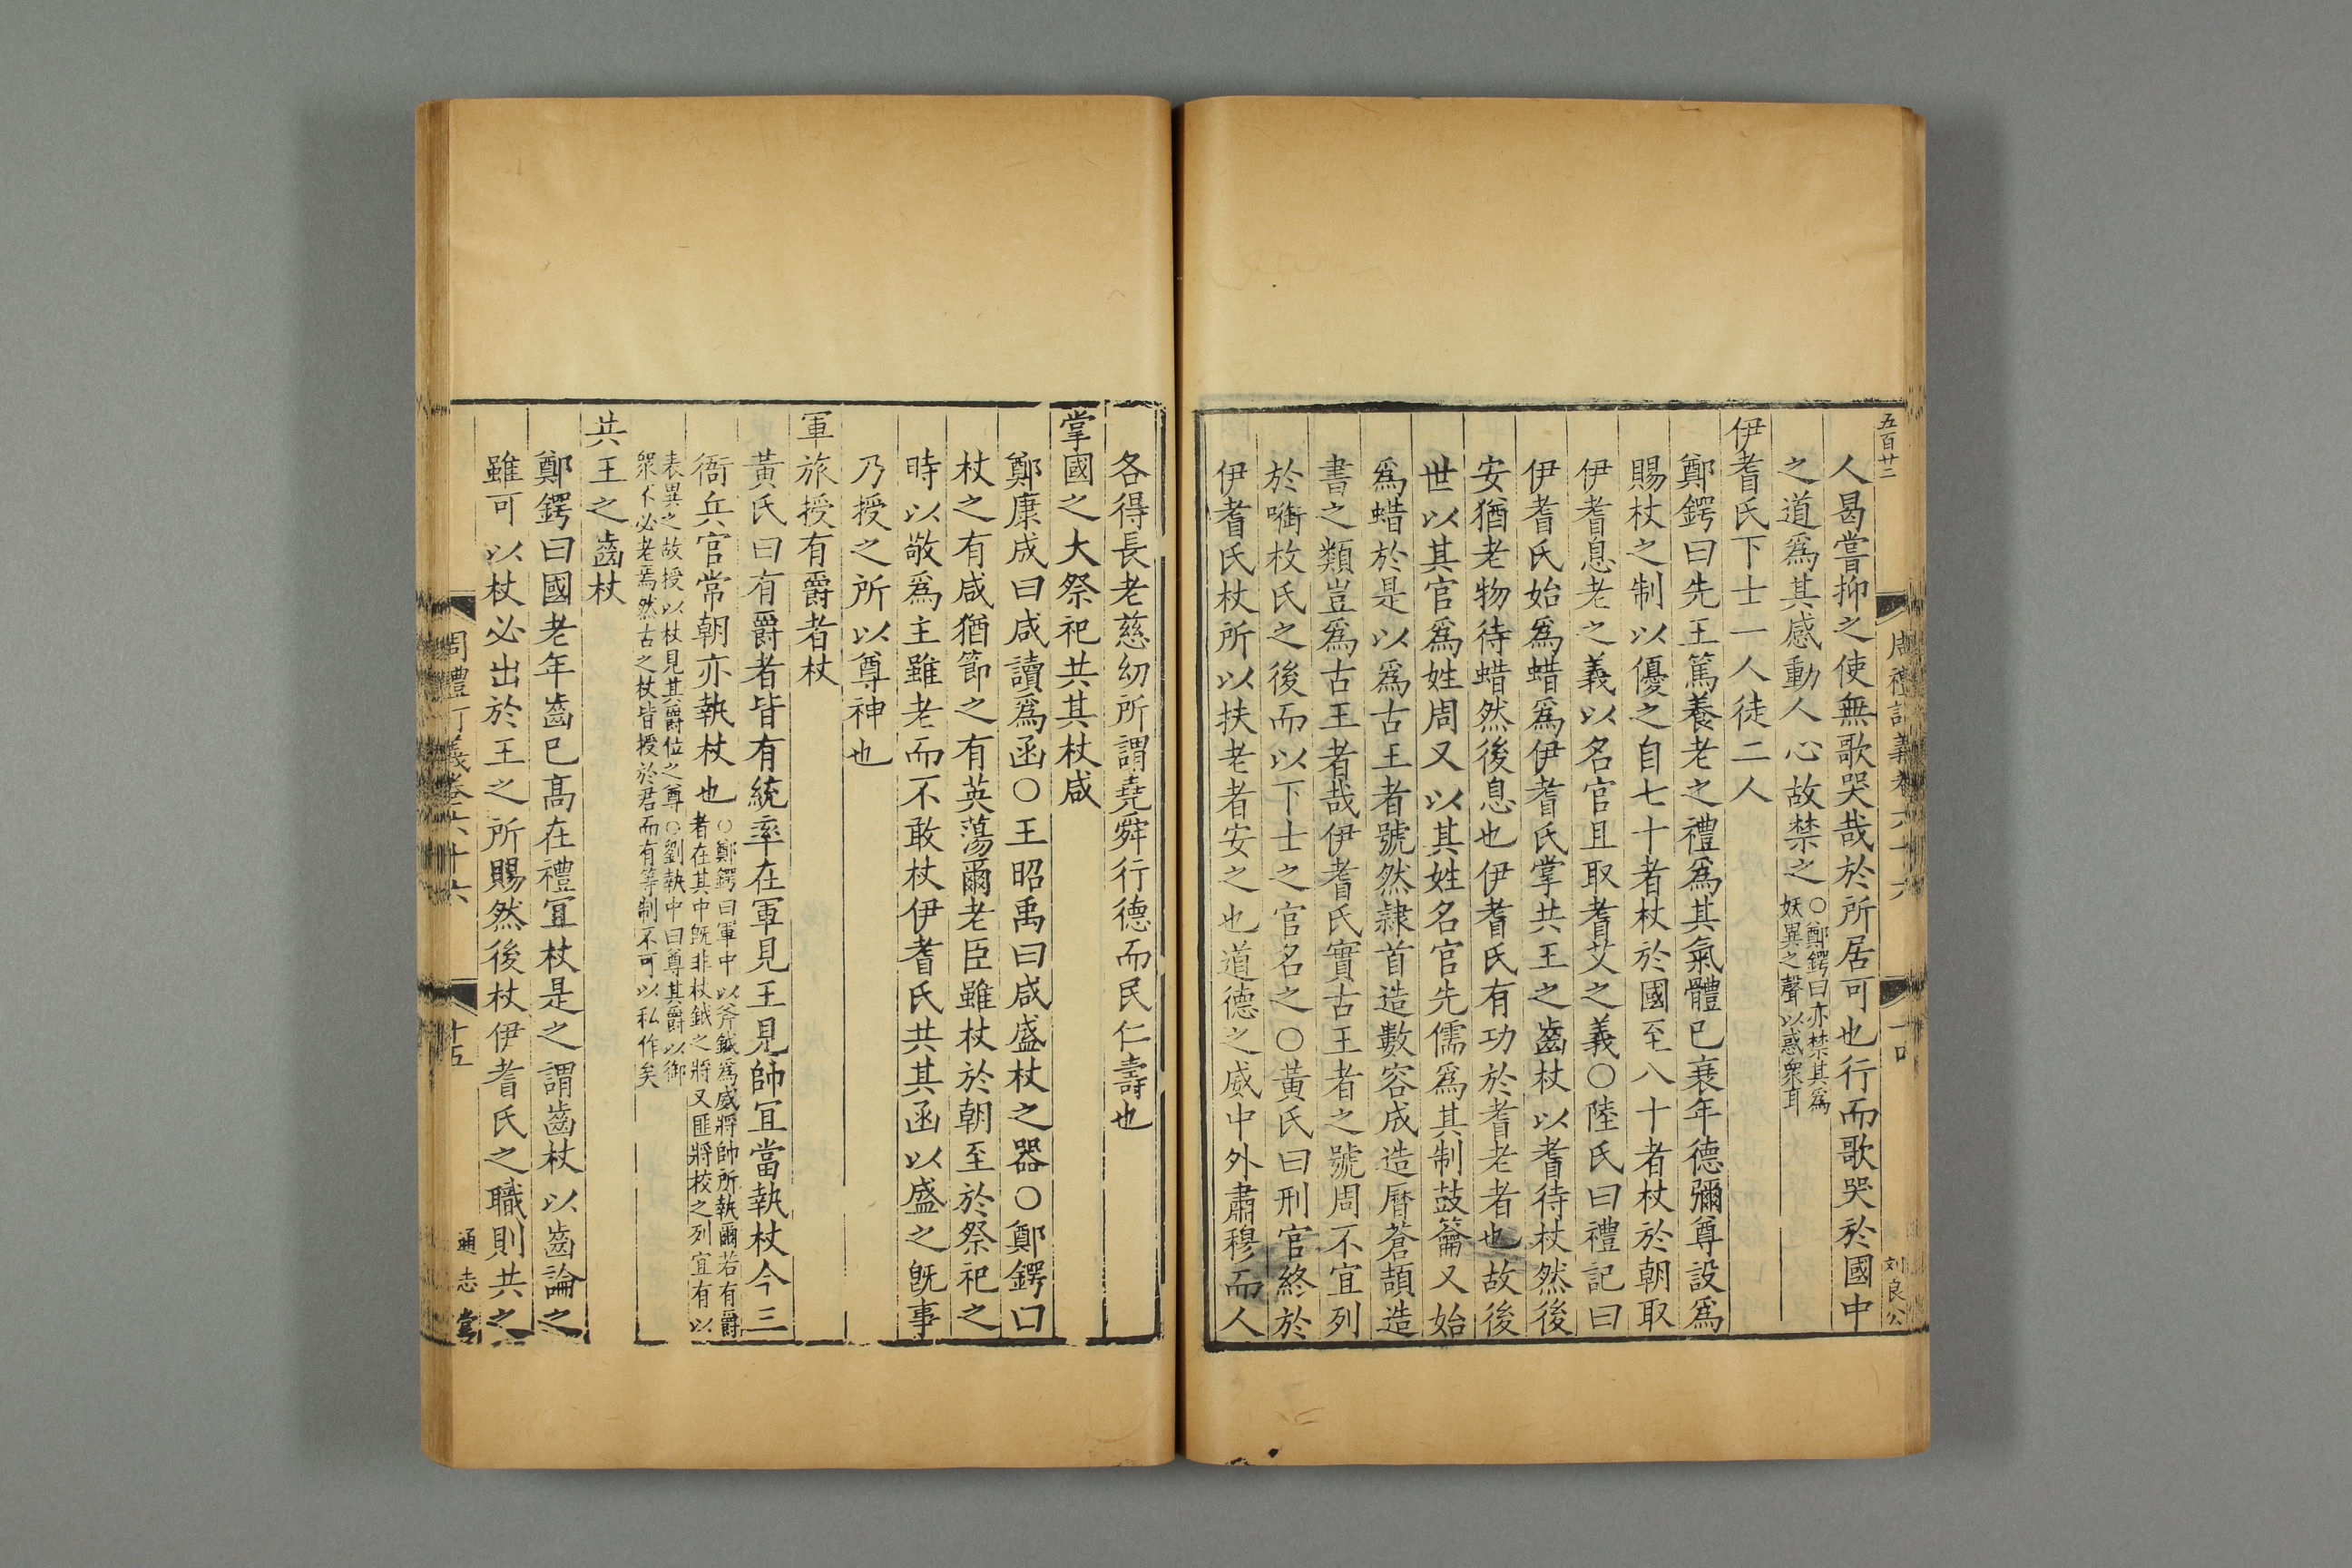 五百廿二
人曷嘗抑之使無歌哭哉於所居可也行而歌哭於國中
之道爲其感動人心故禁之○鄭鍔曰亦禁其爲
妖異之聲以惑衆耳
伊耆氏下士一人徒二人
鄭鍔曰先王篤養老之禮爲其氣體已衰年德彌尊設爲
賜杖之制以優之自七十者杖於國至八十者杖於朝取
伊耆息老之義以名官且取耆艾之義○陸氏曰禮記曰
伊耆氏始爲蜡爲伊耆氏掌共王之齒杖以耆待杖然後
安猶老物待蜡然後息也伊耆氏有功於耆老者也故後
世以其官爲姓周又以其姓名官先儒爲其制鼓籥又始
爲蜡於是以爲古王者號然隸首造數容成造曆蒼頡造
書之類豈爲古王者哉伊耆氏實古王者之號周不宜列
於㗸枚氏之後而以下士之官名之○黃氏曰刑官終於
伊耆氏杖所以扶老者安之也道德之威中外肅穆而人
周禮訂義卷六十六
十四
刘良公
各得長老慈幼所謂堯舜行德而民仁壽也
掌國之大祭祀共其杖咸
鄭康成曰咸讀爲函○王昭禹曰咸盛杖之器○鄭鍔曰
杖之有咸猶節之有英蕩爾老臣雖杖於朝至於祭祀之
時以敬爲主雖老而不敢杖伊耆氏共其函以盛之旣事
乃授之所以尊神也
軍旅授有爵者杖
黃氏曰有爵者皆有統率在軍見王見師宜當執杖今三
衙兵官常朝亦執杖也○鄭鍔曰軍中以斧鉞爲威將帥所執爾若有爵
者在其中旣非杖鉞之將又匪將校之列宜有以
表異之故授以杖見其爵位之尊○劉執中曰尊其爵以御
衆不必老焉然古之杖皆授於君而有等制不可以私作矣
共王之齒杖
鄭鍔曰國老年齒已高在禮宜杖是之謂齒杖以齒論之
雖可以杖必出於王之所賜然後杖伊耆氏之職則共之
周禮訂義卷六十六
十五
通志堂